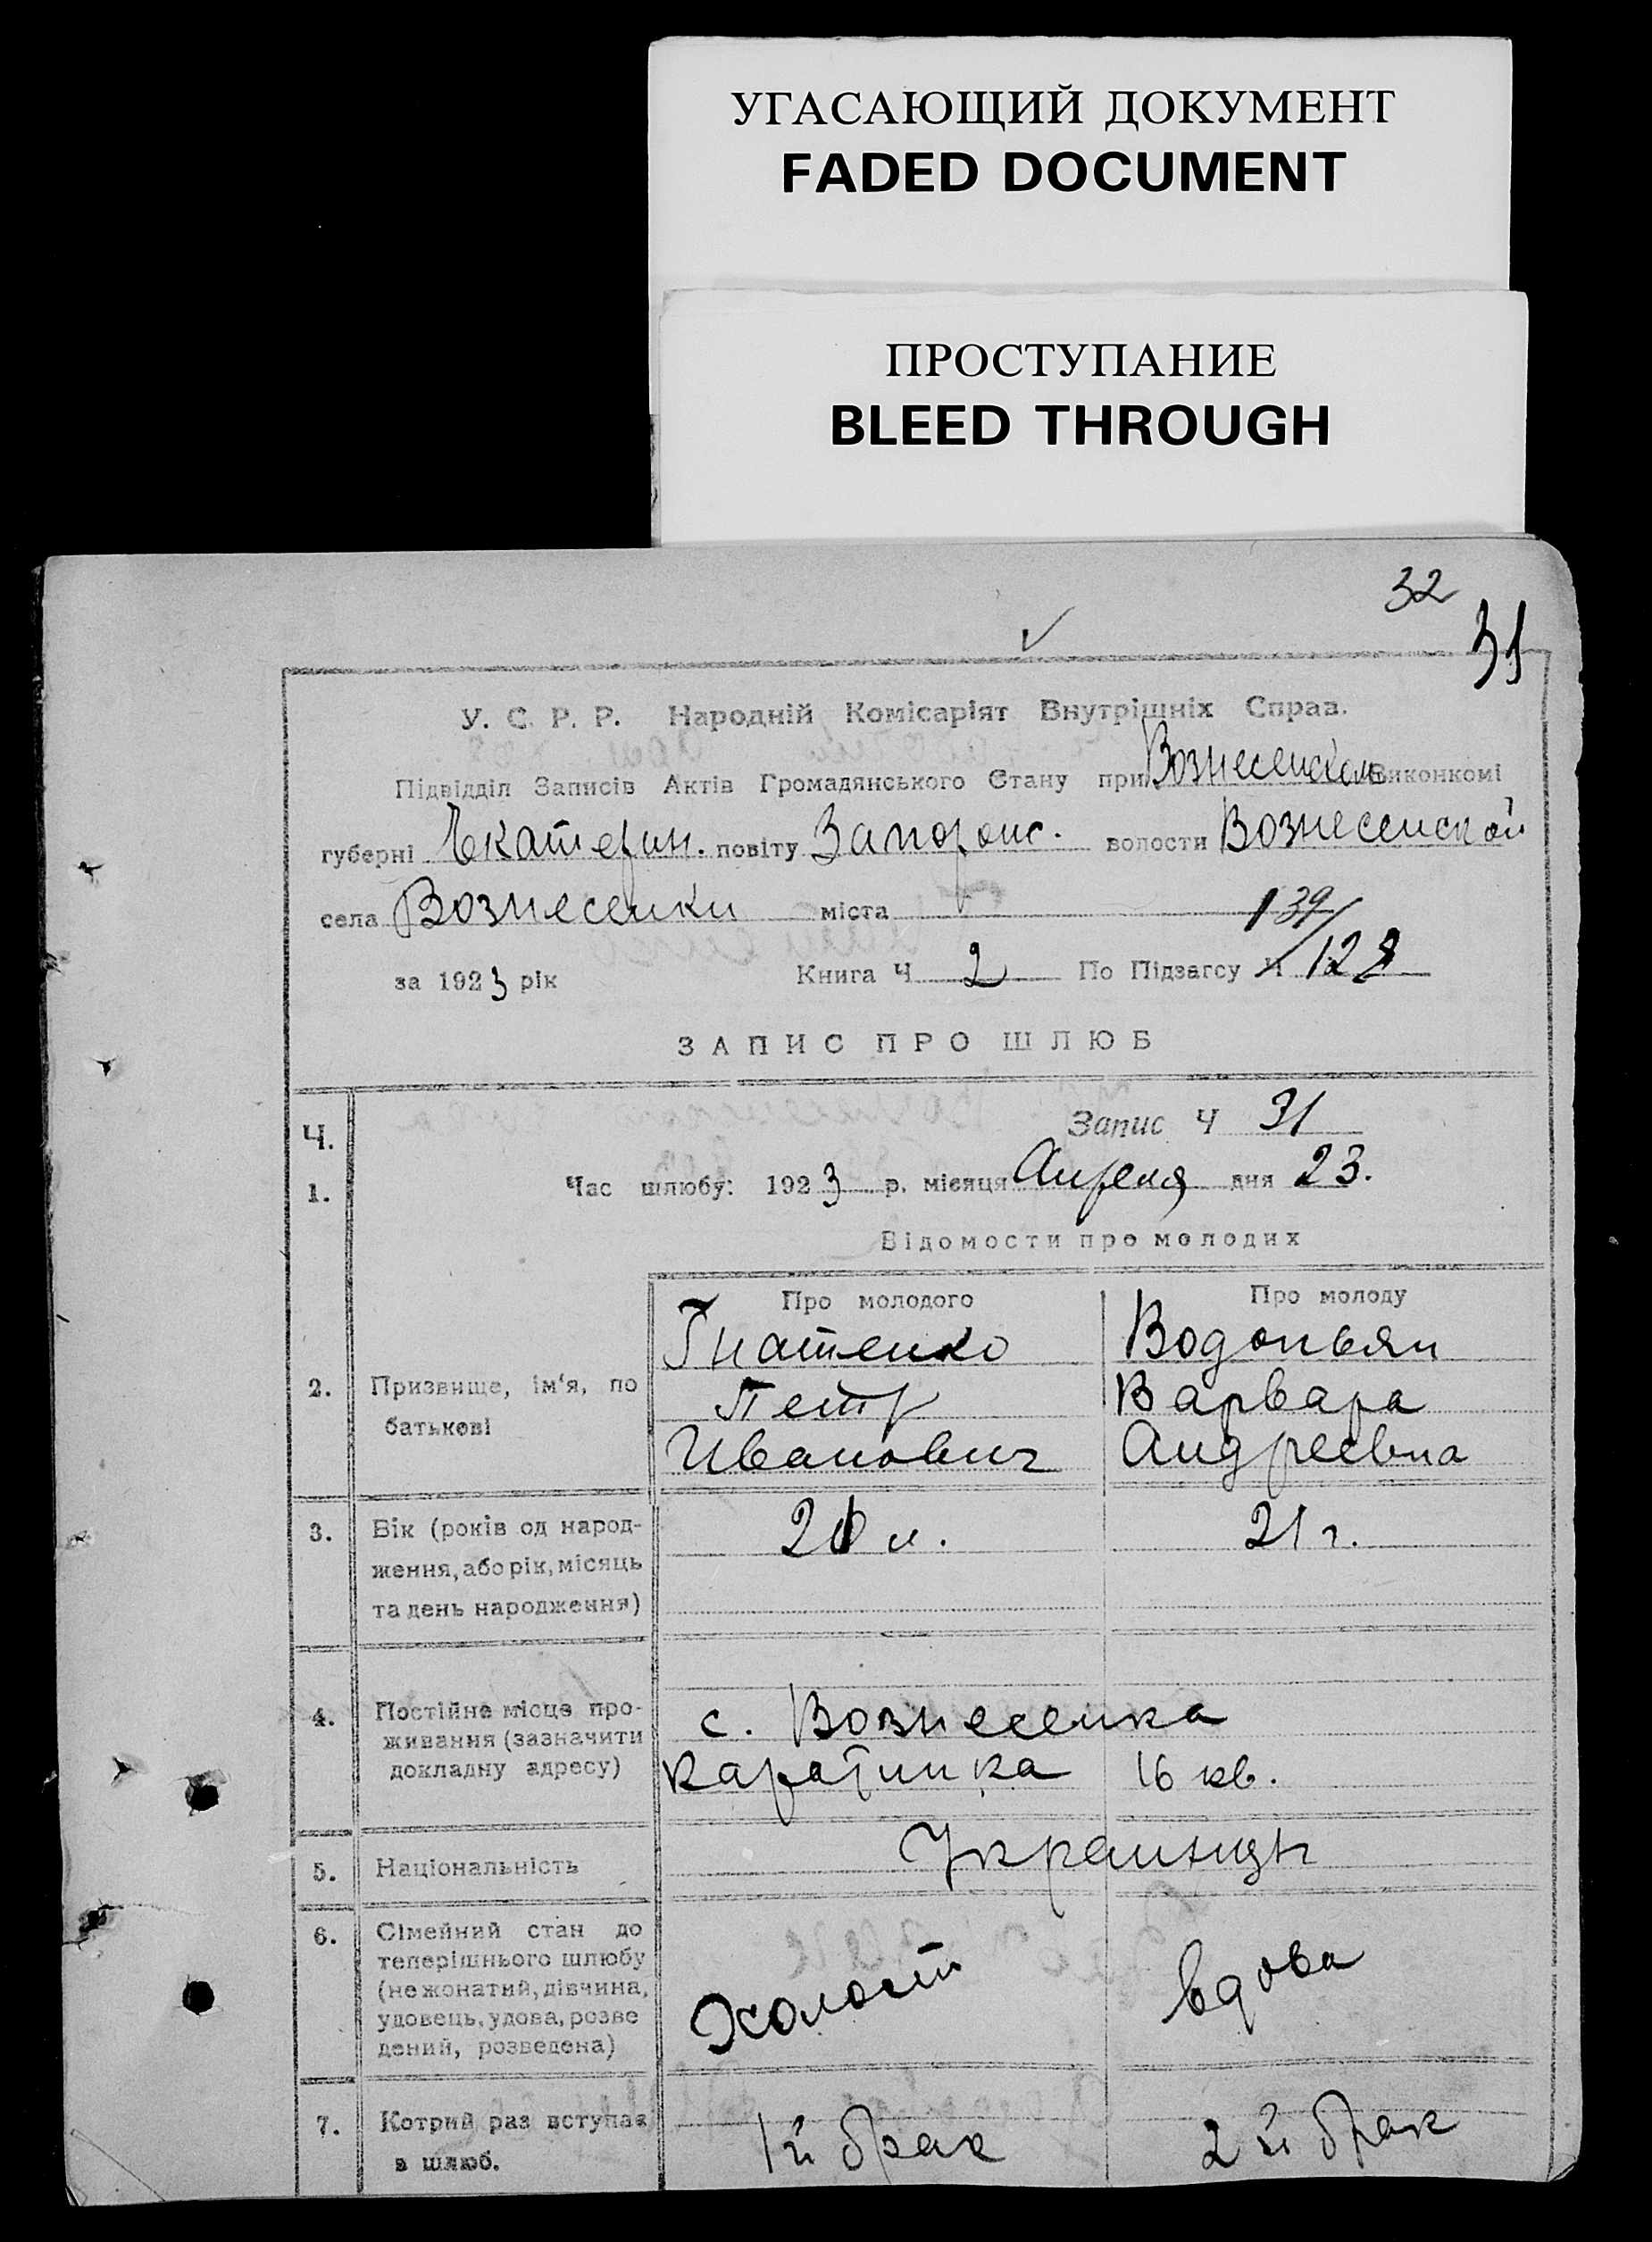 УГАСАЮЩИЙ ДОКУМЕНТ
FADED DOCUMENT
ПРОСТУПАНИЕ
BLEED THROUGH
32
31
У. С. Р. Р. Народній Комісаріят Внутрішніх Справ.
Підвідділ Записів Актів Громадянського Стану при Вознесенском Виконкомі
губерні Екатерин. повіту Запорож. волости Вознесенской
села Вознесенки міста
139/
за 1923 рік Книга Ч 2 По Підзагсу Ч 128
ЗАПИС ПРО ШЛЮБ
Ч. Запис Ч 31
1. Час шлюбу: 1923 р. місяця Апреля дня 23.
Відомости про молодих
Про молодого Про молоду
Гнатенко Водопьян
2. Призвище, ім'я, по Петр Варвара
батькові Иванович Андреевна
3. Вік (років од народ- 20 л. 21 г.
ження, або рік, місяць
та день народження)
4. Постійне місце про- с. Вознесенка
живання (зазначити
докладну адресу) 16 кв.
5. Національність Украинцы
6. Сімейний стан до
теперішнього шлюбу
(не жонатий, дівчина, Холост вдова
удовець, удова, розве
дений, розведена)
7. Котрий раз вступає 1й брак 2й брак
в шлюб.